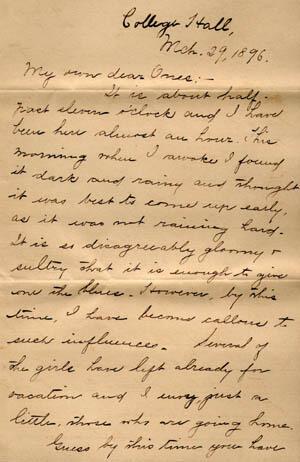 College Hall,
Mch. 29, 1896.
My own dear Ones:-
It is about half-
past eleven o'clock and I have
been here almost an hour. This
morning when I awoke I found
it dark and rainy and thought
it was best to come up early,
as it was not raining hard.
It is so disagreeably gloomy &
sultry that it is enough to give
one the blues. However, by this
time, I have become callous to
such influence. Several of
the girls have left already for
vacation and I envy, just a
little, those who are going home.
Guess by this time you have